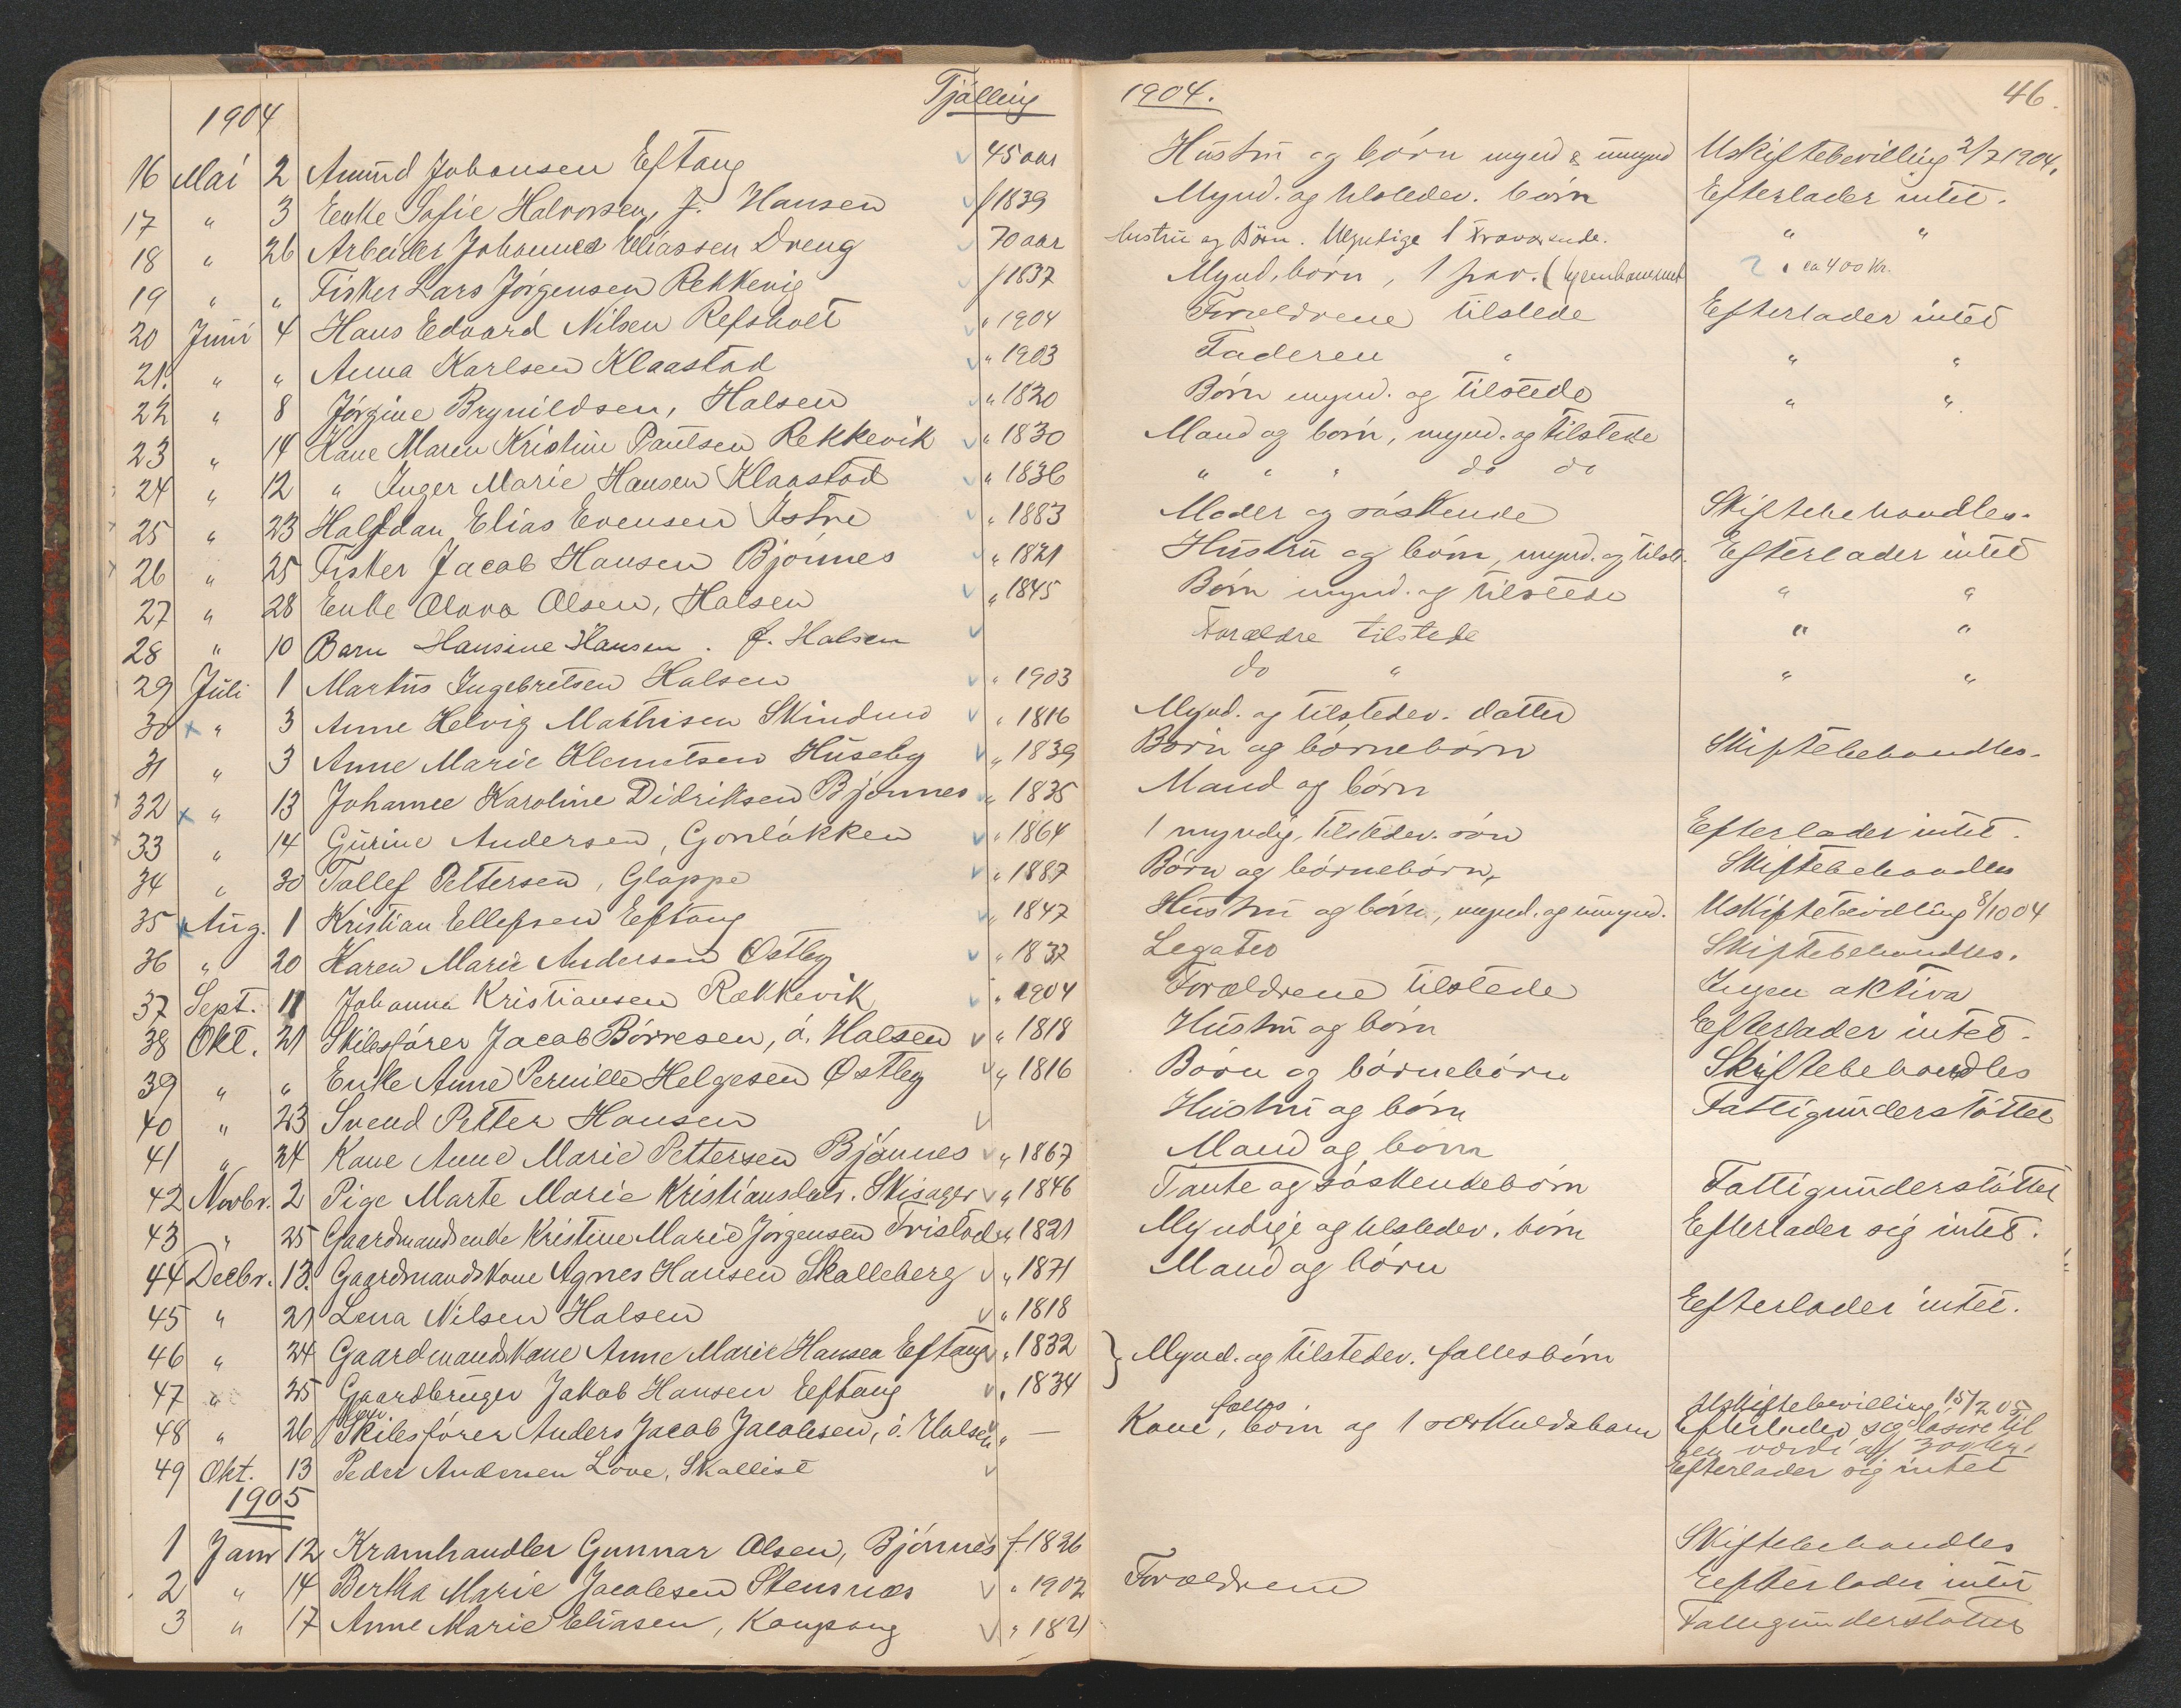 Tjølling
1904
16 Mai 2 Amund Johansen Eftang 45 aar
17 " 3 Enke Sofie Halvorsen, f. Hansen f 1839
18 " 26 Arbeider Johannes Eliassen Dreng 70 aar
19 " " Fisker Lars Jørgensen Rekkevig f 1837
20 Juni 4 Hans Edvard Nilsen Refsholt " 1904
21. " " Anna Karlsen Klaastad " 1903
22 " 8 Jørgine Brynildsen, Halsen " 1820
23 " 14 Kone Maren Kristine Paulsen Rekkevik " 1830
24 " 12 " Inger Marie Hansen Klaastad " 1836
25 " 23 Halfdan Elias Evensen Istre " 1883
26 " 25 Fisker Jacob Hansen Bjønnes " 1821
27 " 28 Enke Olava Olsen, Halsen " 1845
28 " 10 Barn Hansine Hansen. f. Halsen
29 Juli 1 Martus Ingebretsen Halsen " 1903
30 x " 3 Anne Helvig Mathisen Skindmo " 1816
31 " 3 Anne Marie Klemetsen Huseby " 1839
32 x " 13 Johanne Karoline Didriksen Bjønnes " 1835
33 " 14 Gurine Andersen, Gonløkken " 1864
34 " 30 Tollef Pettersen, Gloppe " 1887
35 x Aug. 1 Kristian Ellefsen Eftang " 1847
36 " 20 Karen Marie Andersen Østby " 1837
37 Sept. 11 Johanna Kristiansen Rækkevik " 1904
38 Okt. 21 Skibsfører Jacob Børresen, ø. Halsen " 1818
39 " " Enke Anne Pernille Helgesen Østby " 1816
40 " 23 Svend Petter Hansen
41 " 24 Kone Anne Marie Pettersen Bjønnes " 1867
42 Novbr. 2 Pige Marte Marie Kristiansdatr. Skisager " 1846
43 " 25 Gaardmandsenke Kristine Marie Jørgensen Tristad " 1821
44 Decbr. 13. Gaardmandskone Agnes Hansen Skalleberg " 1871
45 " 21 Lena Nilsen Halsen " 1818
46 " 24 Gaardmandskone Anne Marie Hansen Eftang " 1832
47 " 25 Gaardbruger Jakob Hansen Eftang " 1834
48 " 26 Skibsfører Anders Jacob Jacobsen, ø. Halsen " —
49 Okt. 13 Peder Andersen Love, Skallist
1905
1 Janr 12 Kramhandler Gunnar Olsen, Bjønnes f. 1826
2 " 14 Bertha Marie Jacobsen Stensnæs " 1902
3 " 17 Anne Marie Eliasen, Kaupang " 1821
1904. 46.
Hustru og børn mynd & umynd Uskiftebevilling 2/7 1904.
Mynd. og tilstedev. børn Efterlader intet.
Hustru og Børn. Myndige 1 fraværende. " "
Mynd. børn, 1 frav. ( ? " ca 400 Kr.
Forældrene tilstede Efterlader intet
Faderen " " "
Børn mynd. og tilstede " "
Mand og børn, mynd. og tilstede
" " " do do
Moder og søskende Skiftebehandles.
Hustru og børn, mynd. og tilst. Efterlader intet
Børn mynd. og tilstede " "
Forældre tilstede " "
do " " "
Mynd. og tilstedev. datter
Børn og børnebørn Skiftebehandles.
Mand og børn
1 myndig, tilstedev. søn Efterlader intet.
Børn og børnebørn, Skiftebehandles
Hustru og børn, mynd. og umynd. Uskiftebevilling 8/10 04
Legater Skiftebehandles.
Forældrene tilstede Ingen aktiva
Hustru og børn Efterlader intet.
Børn og børnebørn Skiftebehandles
Hustru og børn Fattigunderstøttet
Mand og børn
Tante og søskendebørn Fattigunderstøttet
Myndige og tilstedev. børn Efterlader sig intet.
Mand og børn
Efterlader intet.
} Mynd. og tilstedev. fællesbørn
Uskiftebevilling 15/2 05
Kone, fælles børn og 1 særkuldsbarn Efterlader sig løsøre til
en værdi af 300 kr.
Efterlader sig intet
Skiftebehandles
Forældrene Efterlader intet
Fattigunderstøttet